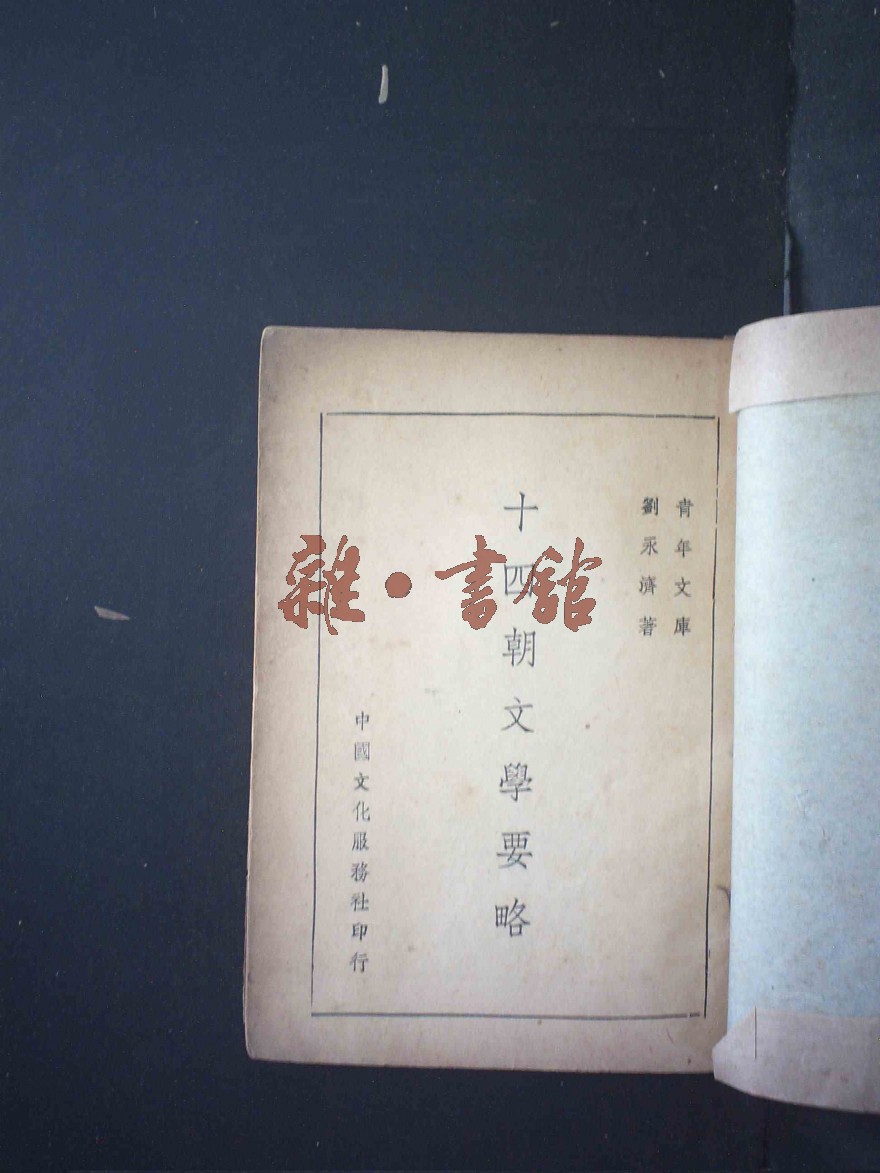 青年文庫
劉永濟著
十四朝文學要略
中國文化服務社印行
雜·書館